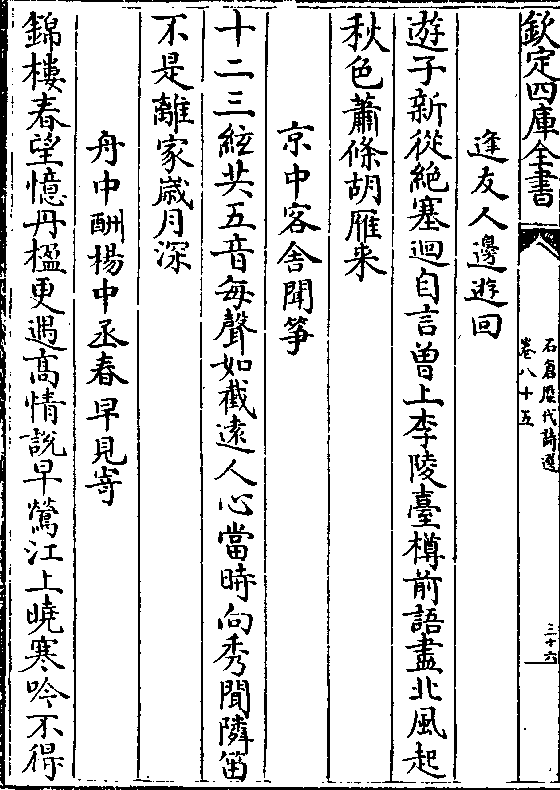 欽定四庫全書
石倉歷代詩選
卷八十五
三十六
逢友人邊遊回
遊子新從絶塞迴自言曽上李陵臺樽前語盡北風起
秋色蕭條胡雁来
京中客舎聞箏
十二三絃共五音每聲如截逺人心當時向秀聞隣笛
不是離家嵗月深
舟中酬楊中丞春早見寄
錦樓春望憶丹楹更遇髙情說早鶯江上曉寒吟不得